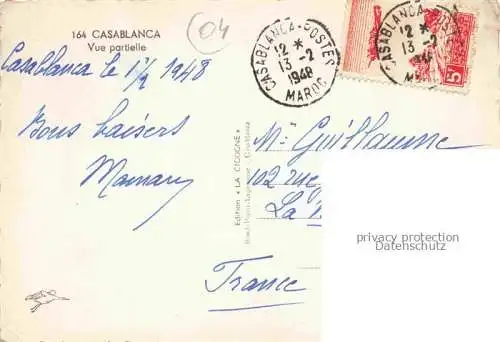 164 CASABLANCA
Vue partielle
04
CASABLANCA-POSTES
12 *
13 -2
1948
MAROC
CASABLANCA
12 *
13 -2
194
5
Casablanca le 1/2 1948
Bons baisers
Maman
Edition "LA CIGOGNE"
Mr Guillaume
102 rue
La
France
privacy protection
Datenschutz